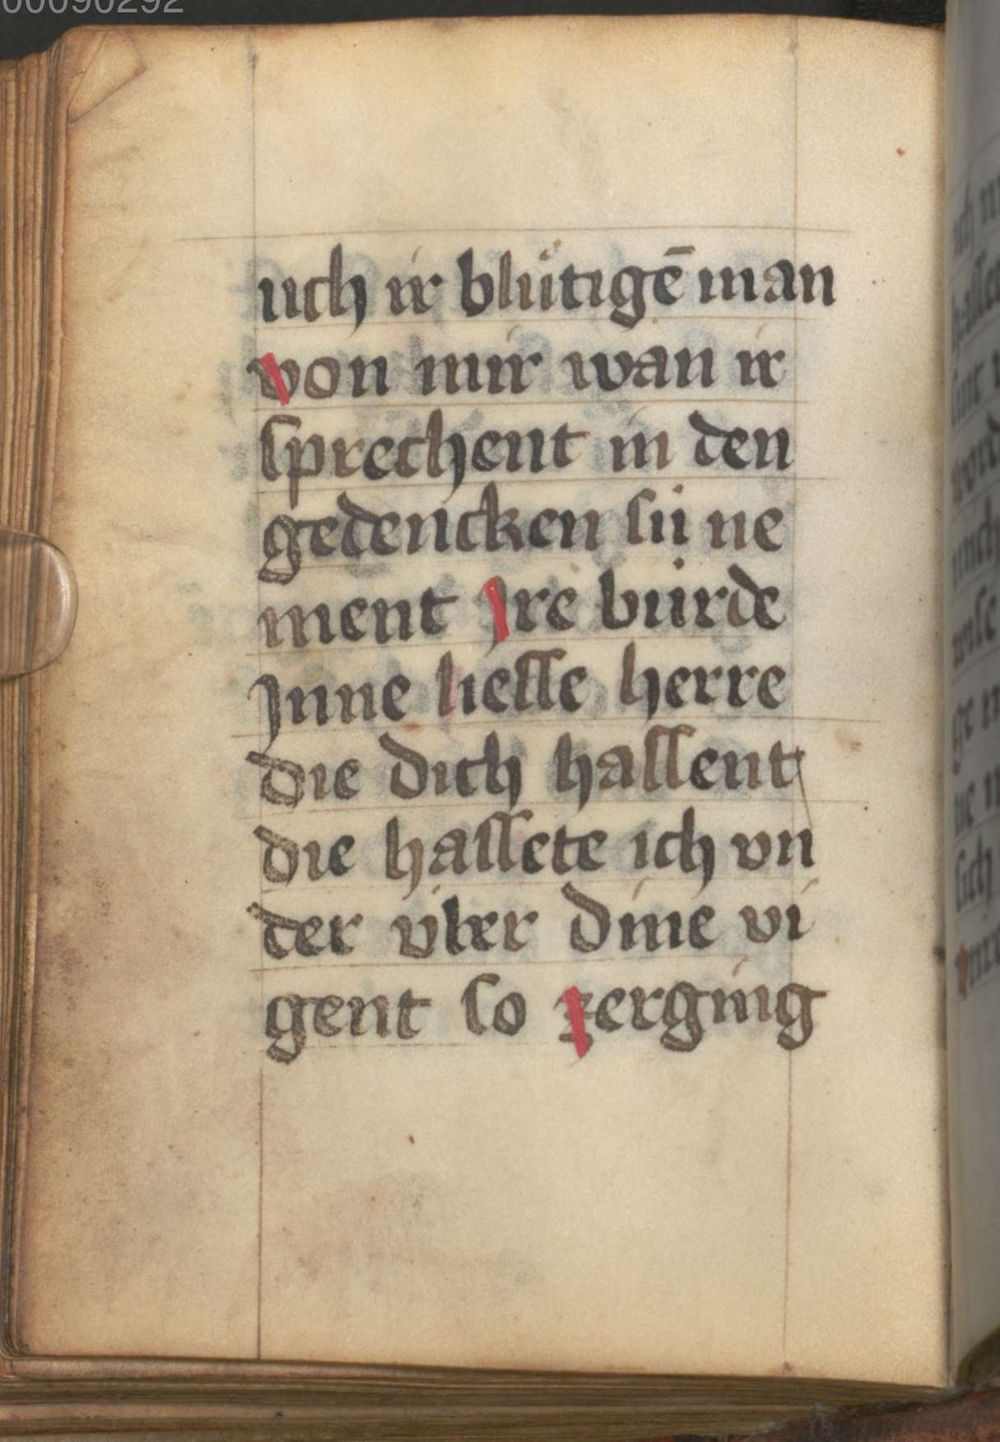 00090292
uch ir blütigē man
von mir wan ir
sprechent in den
gedencken sü ne
ment Jre bürde
Jnne liesse herre
die dich hassent
die hassete ich vn
der vber dine vi
gent so zerging